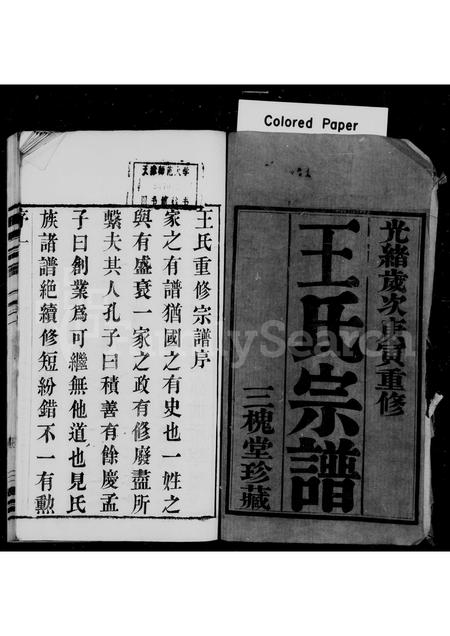 Colored Paper
光緒歲次庚寅重修
王氏宗譜
三槐堂珍藏
天津師范大学
图书馆藏书
王氏重修宗譜序
家之有譜猶國之有史也一姓之
與有盛衰一家之政有修廢盡所
繫夫其人孔子曰積善有餘慶孟
子曰創業爲可繼無他道也見氏
族諸譜絶續修短紛錯不一有勲
序一
FamilySearch